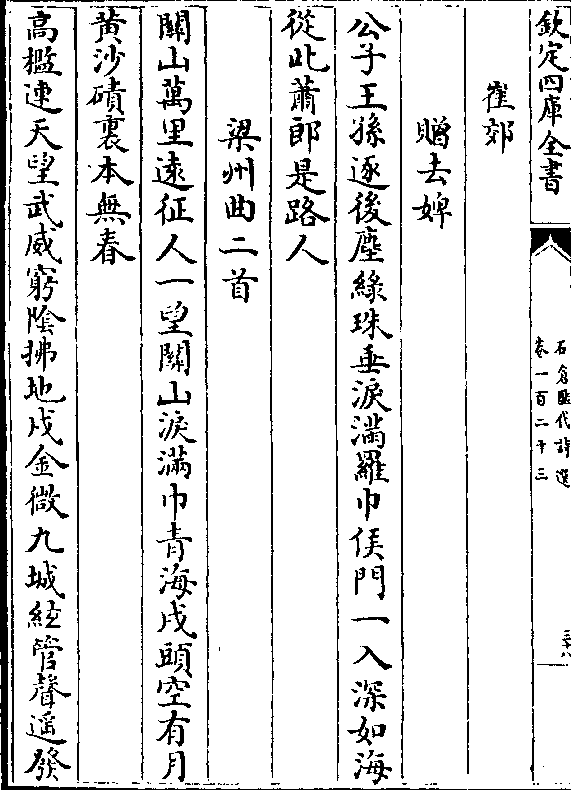 欽定四庫全書
石倉歷代詩選
卷一百二十三
三十八
崔郊
贈去婢
公子王孫逐後塵綠珠垂淚滿羅巾侯門一入深如海
從此蕭郎是路人
梁州曲二首
關山萬里遠征人一望關山淚滿巾青海戍頭空有月
黄沙磧裏本無春
高檻連天望武威窮陰拂地戍金微九城絃管聲遥發